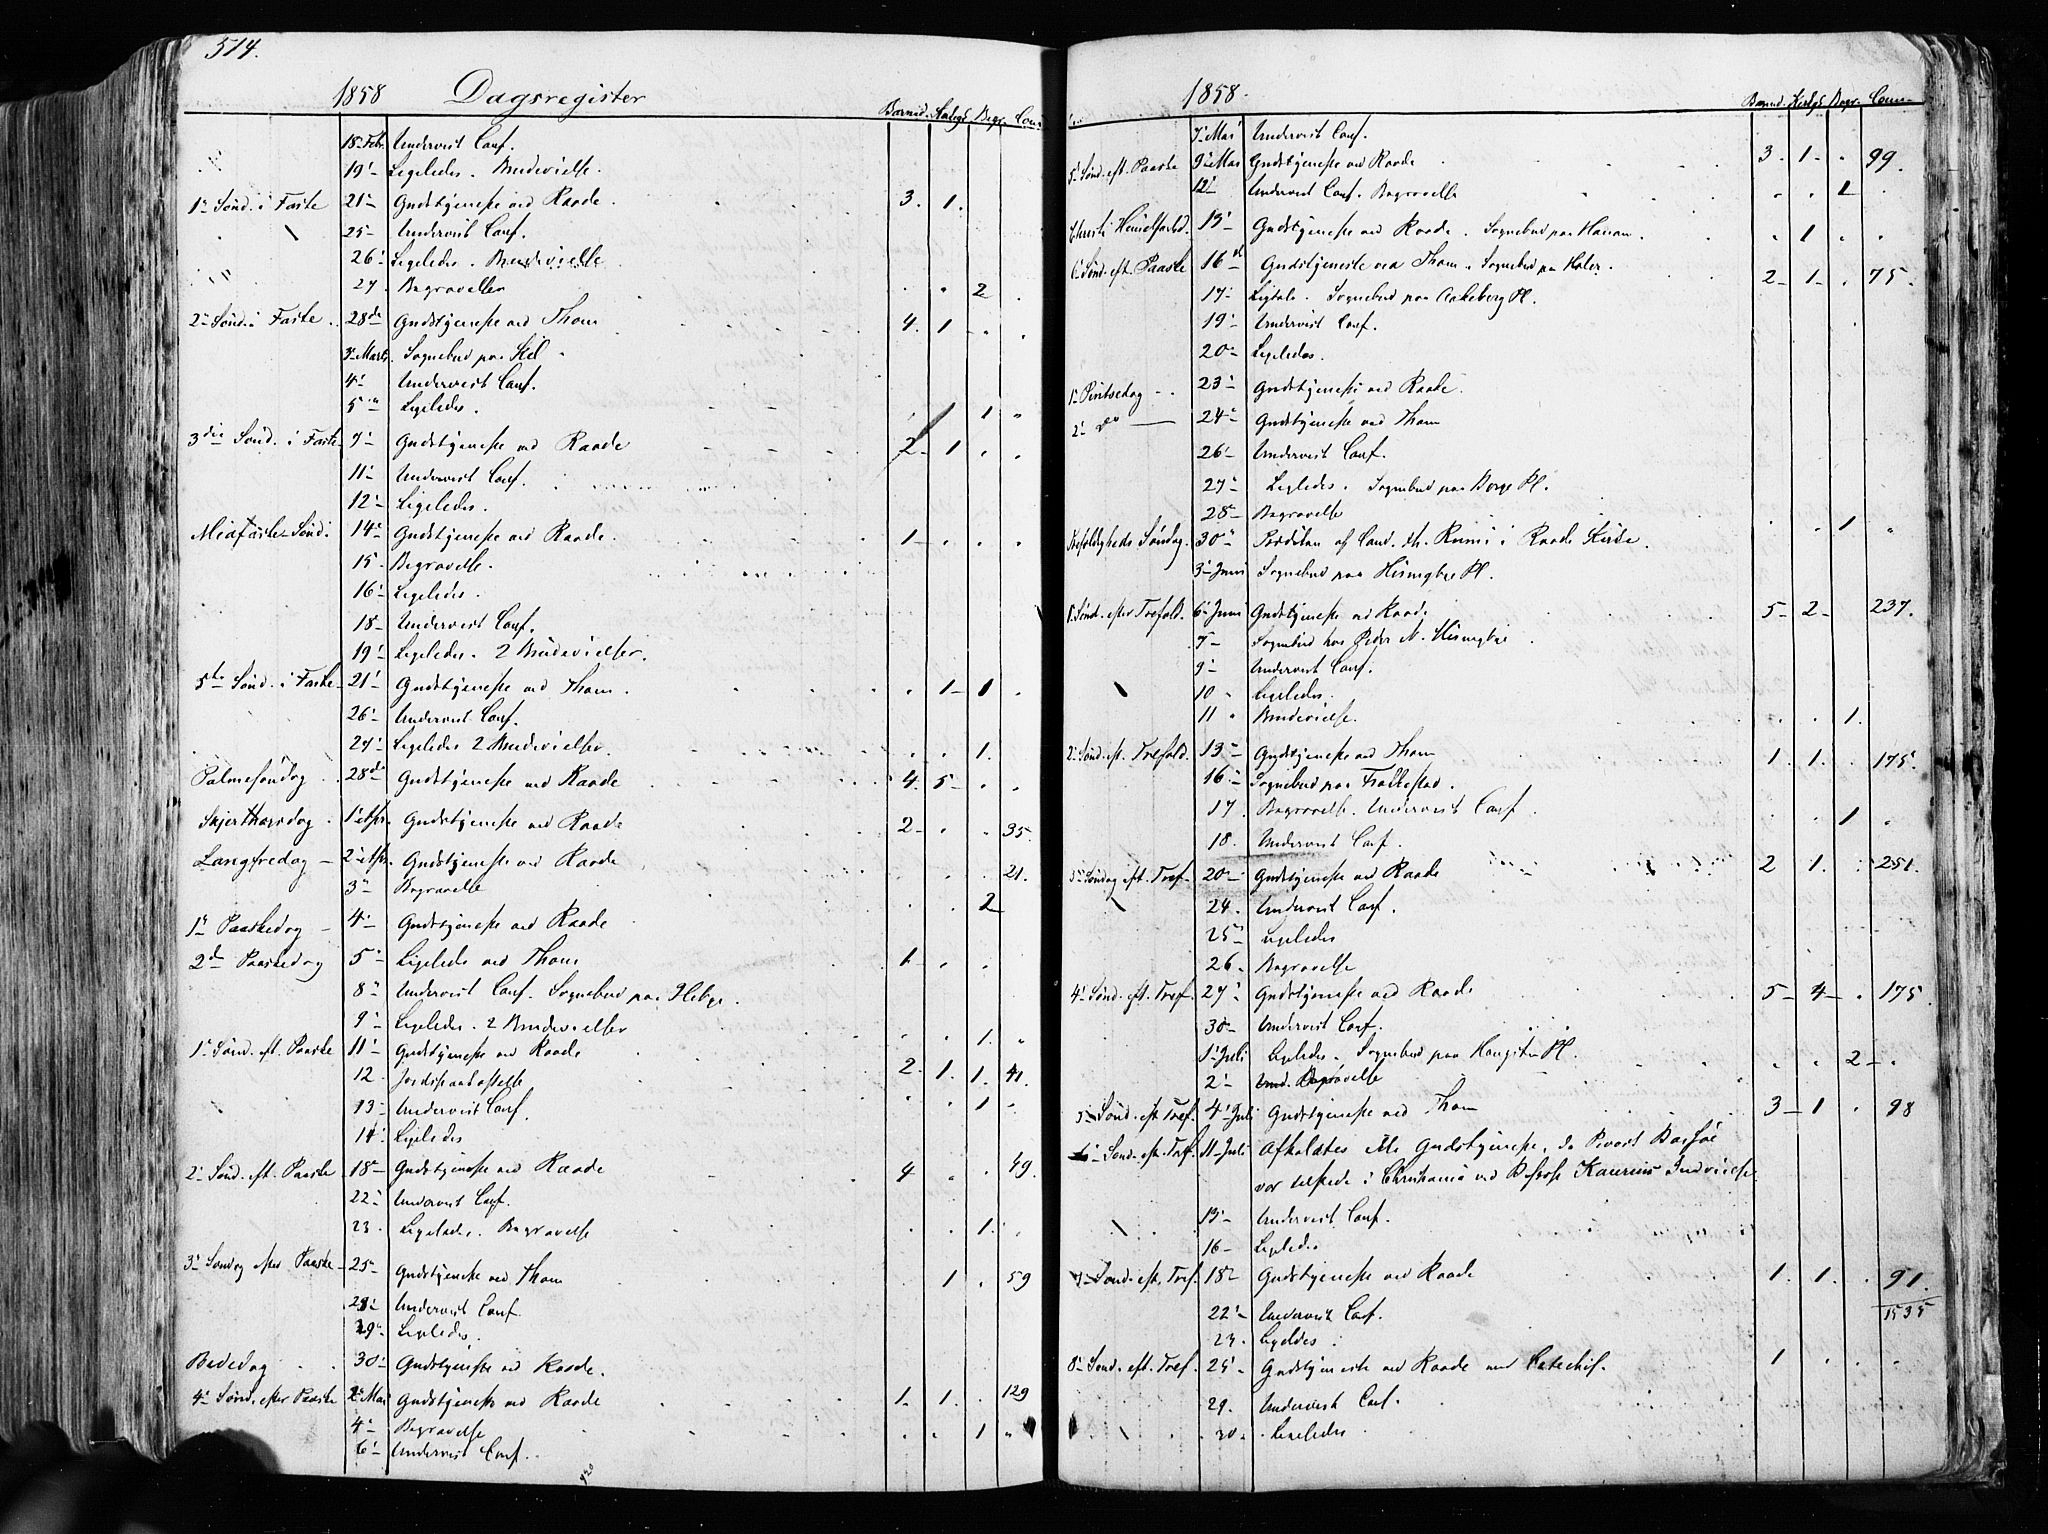 514.
1858 Dagsregister
Barned. Kirkeg. Begr. Com.
18 Febr. Undervist Conf.
19 Ligeledes. Brudevielse.
1ste Sönd. i Faste 21 Gudstjeneste ved Raade. 3. 1.
25 Undervist Conf.
26 Ligeledes. Brudevielse.
27. Begravelse 2
2den Sönd. i Faste 28de Gudstjeneste ved Thom 4. 1
3 Marts. Sognebud paa Kil
4 Undervist Conf.
5 Ligeledes. 1 1
3die Sönd. i Faste 7 Gudstjeneste ved Raade 2 1
11 Undervist Conf.
12 Ligeledes.
Midfaste Sönd. 14 Gudstjeneste ved Raade. 1
15. Begravelse.
16 Ligeledes.
18 Undervist Conf.
19 Ligeledes. 2 Brudevielser.
5te Sönd. i Faste 21 Gudstjeneste ved Thom. 1 1
26 Undervist Conf.
27 Ligeledes 2 Brudevielser. 1.
Palmesöndag 28de Gudstjeneste ved Raade 4. 5
Skjerthorsdag. 1 Apr. Gudstjeneste ved Raade 2 35
Langfredag 2 Apr. Gudstjeneste ved Raade 21.
3 Begravelse 2
1ste Paaskedag 4 Gudstjeneste ved Raade
2den Paaskedag 5 Ligeledes ved Thom 1
8 Undervist Conf. Sognebud paa Heboe.
9 Ligeledes. 2 Brudevielser 1.
1ste Sönd. eft. Paaske 11 Gudstjeneste ved Raade 2. 1. 1. 41.
12. Jordspaakastelse 1
13 Undervist Conf.
14 Ligeledes
2. Sönd. eft. Paaske 18 Gudstjeneste ved Raade 4 49.
22 Undervist Conf.
23. Ligeledes. Begravelse 1.
3. Söndag efter Paaske 25 Gudstjeneste ved Thom 1 59
28 Undervist Conf.
29 Ligeledes.
Bededag 30 Gudstjeneste ved Raade.
4. Sönd. efter Paaske 2 Mai Gudstjeneste ved Raade 1. 1. 129
4 Begravelse 1
6 Undervist Conf.
1858.
Barned. Kirkeg. Begr. Com.
7 Mai Undervist Conf.
5. Sönd. eft. Paaske 9 Mai Gudstjeneste ved Raade 3. 1. 99.
12 Undervist Conf. Begravelse 1
Christi Himmelfartsd. 13 Gudstjeneste ved Raade. Sognebud paa Hanan. 1.
6. Sönd. eft. Paaske 16d Gudstjeneste ved Thom. Sognebud paa Holer. 2 1 75.
17 Ligtale. Sognebud paa Aakeberg Pl.
19 Undervist Conf.
20 Ligeledes.
1. Pintsedag 23 Gudstjeneste ved Raade.
2. do 24 Gudstjeneste ved Thom
26 Undervist Conf.
27 Ligeledes. Sognebud paa Borge Pl.
28 Begravelse 1
Trefoldigheds Söndag. 30 Prædiken af Cand. th. in Raade Kirke.
3 Juni Sognebud paa Hisingbye Pl.
1. Sönd. efter Trefold. 6 Juni Gudstjeneste ved Raade 5 2 237.
7 Sognebud hos Peder N. Hisingbye
9 Undervist Conf.
10 Ligeledes.
11 Brudevielse. 1.
2. Sönd. eft. Trefold. 13 Gudstjeneste ved Thom 1. 1. 175.
16 Sognebud paa Frolkestad.
17. Begravelse. Undervist Conf. 1
18. Undervist Conf.
3. Söndag eft. Tref. 20 Gudstjeneste ved Raade 2 1. 251.
24. Undervist Conf.
25 Ligeledes
26. Begravelse
4. Sönd. eft. Tref. 27 Gudstjeneste ved Raade 5 4 175.
30 Undervist Conf.
1 Juli Ligeledes. Sognebud paa Haugsten Pl. 2
2 Und. Begravelse
5. Sönd. eft. Tref. 4 Juli Gudstjeneste ved Thom 3 1 98
6. Sönd. eft. Tref. 11 Juli Afholdtes ikke Gudstjeneste, da Provst Barföe
var tilstede i Christiania ved Bisp Kaurins Indvielse
15 Undervist Conf.
16 Ligeledes
7. Sönd. eft. Tref. 18 Gudstjeneste ved Raade 1. 1. 91.
1535
22 Undervist Conf.
23. Ligeledes
8. Sönd. eft. Tref. 25 Gudstjeneste ved Raade med Catechis. 1
29. Undervist Conf.
30. Ligeledes